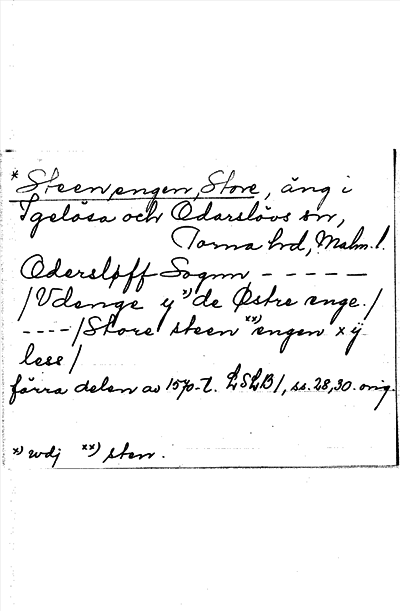 * Steen engen, Store, äng i
Igelösa och Odarslövs sn,
Torna hd, Malm.l.
Odersløff Sognn - - - - -
/Vdenge y *) de Østre enge./
- - - - /Store steen **) engen x ÿ
less/
förra delen av 1570-t. LSLB1, ss. 28, 30. orig.
*) wdj **) sten.